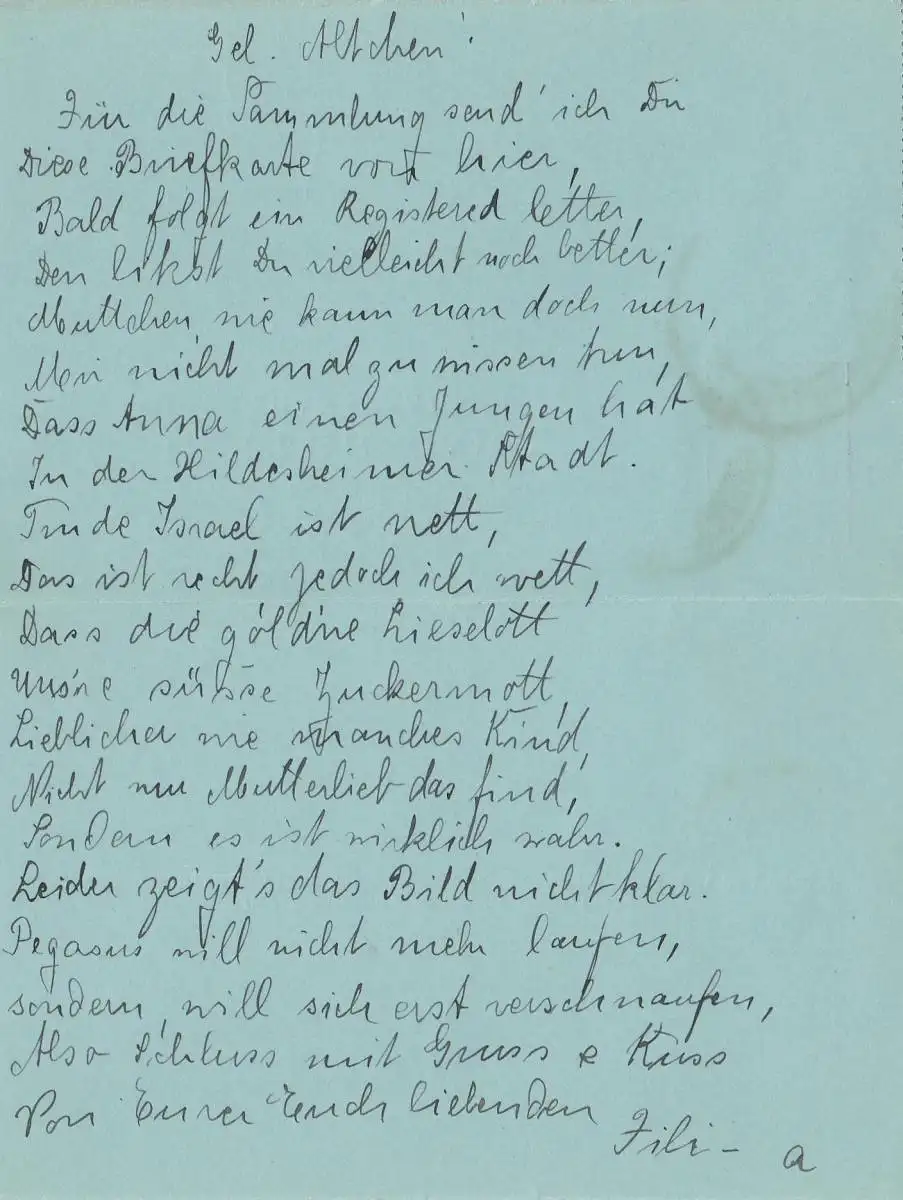 Gel. Altchen!
Für die Sammlung send' ich Dir
Diese Briefkarte von hier,
Bald folgt ein Registered letter,
Den likst Du vielleicht noch better;
Muttchen, wie kann man doch nun,
Mir nicht mal zu wissen tun,
Dass Anna einen Jungen hat
In der Hildesheimer Stadt.
Trude Israel ist nett,
Das ist recht jedoch ich wett,
Dass die gold'ne Lieselott
Uns're süsse Zuckermott,
Lieblicher wie manches Kind,
Nicht nur Mutterlieb das find,
Sondern es ist wirklich wahr.
Leider zeigt's das Bild nicht klar.
Pegasus will nicht mehr laufen,
sondern will sich erst verschnaufen,
Also Schluss mit Gruss & Kuss
Von Eurer Euch liebenden
Fili-a